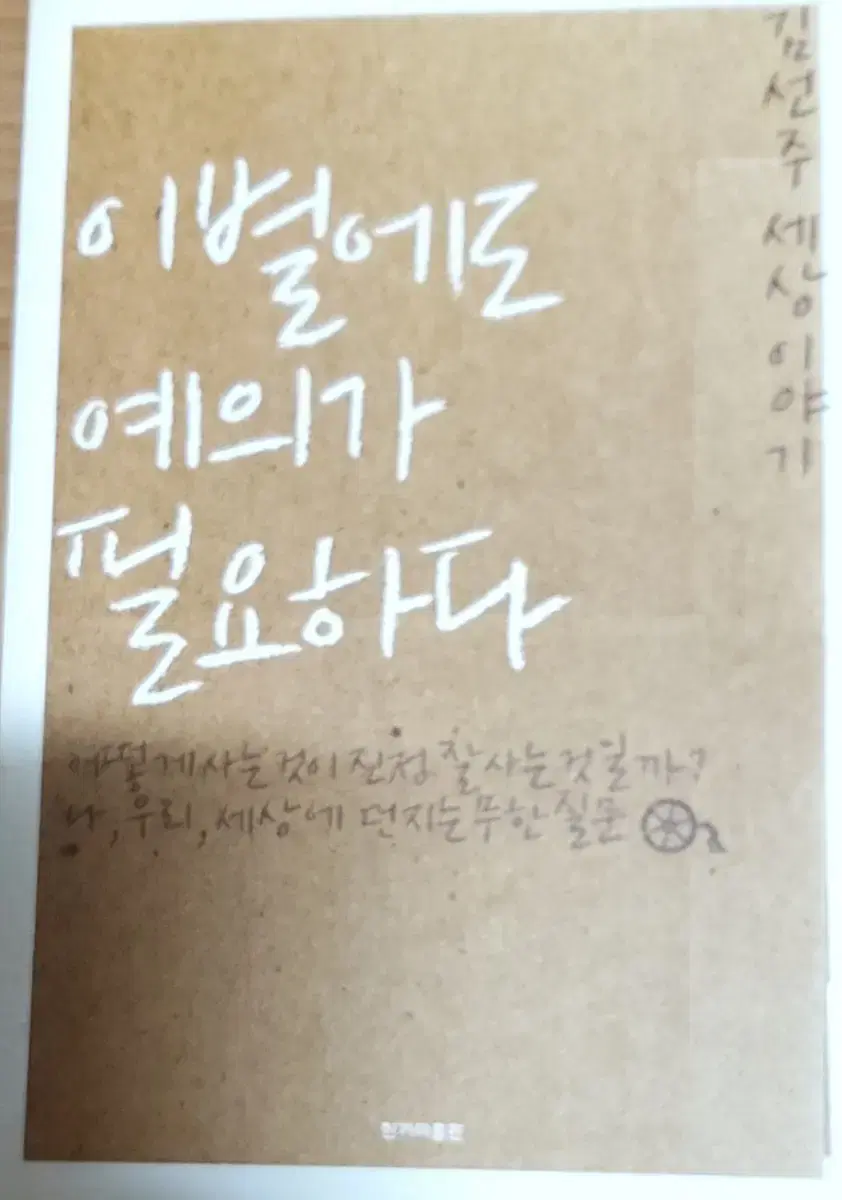 김선주 세상 이야기
이별에도
예의가
필요하다
어떻게 사는 것이 진정 잘 사는 것일까?
나, 우리, 세상에 던지는 무한 질문
한겨레출판